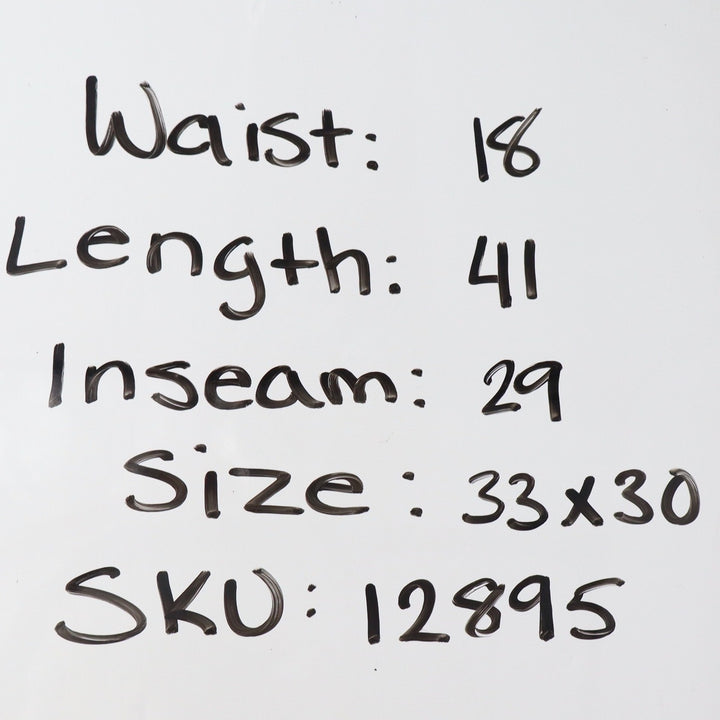 Waist: 18
Length: 41
Inseam: 29
Size: 33x30
SKU: 12895